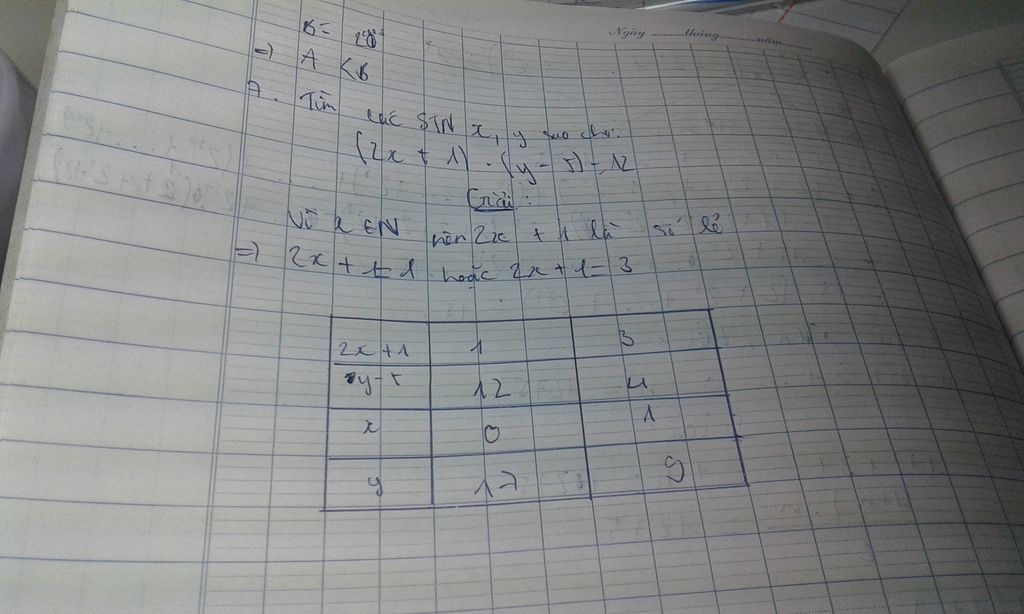 Ngày ........ tháng ........ năm ........
B =
=> A < B
7. Tìm các STN x, y sao cho:
(2x + 1) . (y - 5) = 12
Giải:
Vì x ∈ N nên 2x + 1 là số lẻ
=> 2x + 1 = 1 hoặc 2x + 1 = 3
2x + 1 1 3
y - 5 12 4
x 0 1
y 17 9